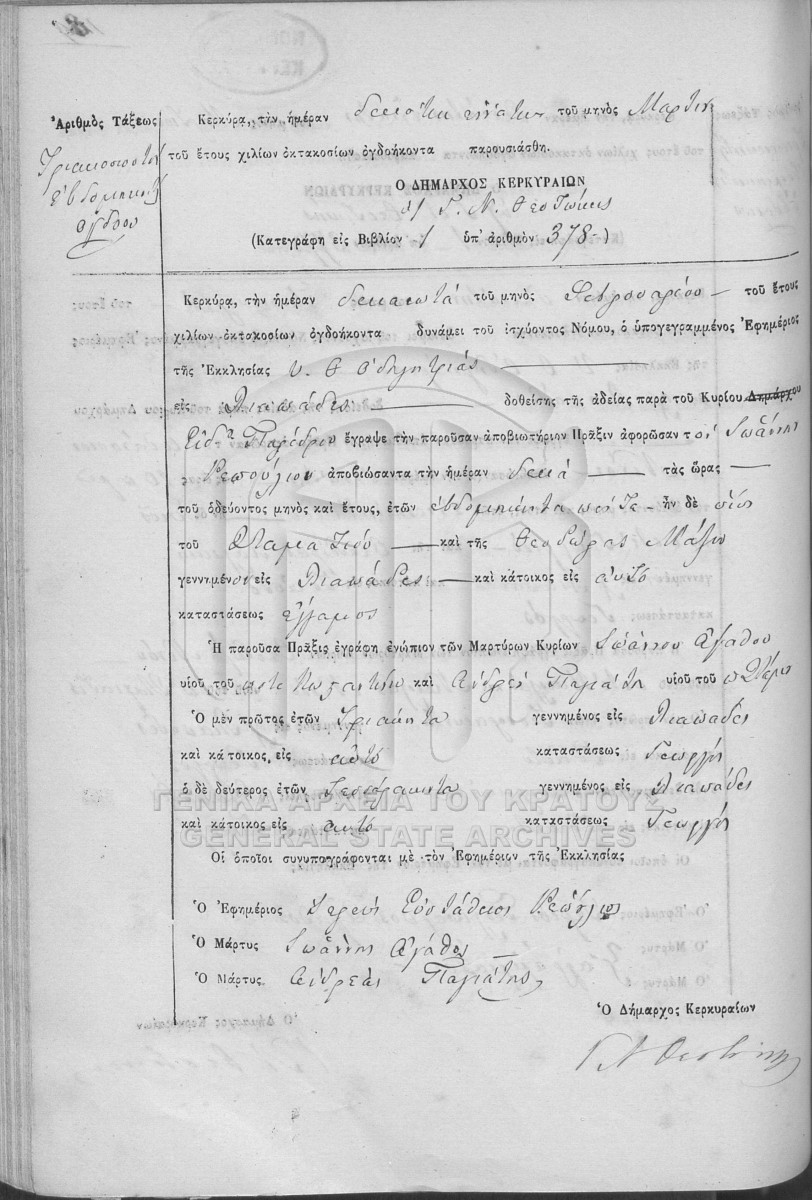 Ἀριθμὸς Τάξεως
Τριακοσιοστὸν
ἑβδομηκοστὸν
ὄγδοον
Κερκύρα, τὴν ἡμέραν δεκάτην ἐννάτην τοῦ μηνὸς Μαρτίου
τοῦ ἔτους χιλίων ὀκτακοσίων ὀγδοήκοντα παρουσιάσθη.
Ὁ ΔΗΜΑΡΧΟΣ ΚΕΡΚΥΡΑΙΩΝ
Γ. Ν. Θεοτόκης
(Κατεγράφη εἰς Βιβλίον 1 ὑπ' ἀριθμὸν 378 -)
Κερκύρα, τὴν ἡμέραν δεκαεπτά τοῦ μηνὸς Φεβρουαρίου — τοῦ ἔτους
χιλίων ὀκτακοσίων ὀγδοήκοντα δυνάμει τοῦ ἰσχύοντος Νόμου, ὁ ὑπογεγραμμένος Ἐφημέριος
τῆς Ἐκκλησίας Υ. Θ Οδηγητριάς
εἰς Λιαπάδες — δοθείσης τῆς ἀδείας παρὰ τοῦ Κυρίου Δημάρχου
Εἰδ. Παρέδρου ἔγραψε τὴν παροῦσαν ἀποβιωτήριον Πρᾶξιν ἀφορῶσαν τὸν Ἰωάννης
Ρεπούλιον ἀποβιώσαντα τὴν ἡμέραν δεκά — τὰς ὥρας —
τοῦ ὁδεύοντος μηνὸς καὶ ἔτους, ἐτῶν ἑβδομηκόντα πέντε — ἦν δὲ υἱός
τοῦ Σταματίου — καὶ τῆς Θεοδώρας Μάζη
γεννημένοι εἰς Λιαπάδες — καὶ κάτοικος εἰς αυτό
καταστάσεως ἔγγαμος
Ἡ παροῦσα Πρᾶξις ἐγράφη ἐνώπιον τῶν Μαρτύρων Κυρίων Ἰωάννου Αγάθου
υἱοῦ τοῦ ποτὲ Κωσταντίνου καὶ Ανδρέα Παγιάτη υἱοῦ τοῦ π Σπύρου
Ὁ μὲν πρῶτος ἐτῶν τριακόντα γεννημένος εἰς Λιαπάδες
καὶ κάτοικος, εἰς αυτό καταστάσεως Γεωργός
ὁ δὲ δεύτερος ἐτῶν τεσσαράκοντα γεννημένος εἰς Λιαπάδες
καὶ κάτοικος εἰς αυτό καταστάσεως Γεωργός
Οἱ ὁποῖοι συνυπογράφονται μὲ τὸν Ἐφημέριον τῆς Ἐκκλησίας
Ὁ Ἐφημέριος Ἱερεύς Εὐστάθειος Ρεπούλιος
Ὁ Μάρτυς Ἰωάννης Αγάθος
Ὁ Μάρτυς Ανδρέας Παγιάτης
Ὁ Δήμαρχος Κερκυραίων
Γ Ν Θεοτόκης
ΓΕΝΙΚΑ ΑΡΧΕΙΑ ΤΟΥ ΚΡΑΤΟΥΣ
GENERAL STATE ARCHIVES